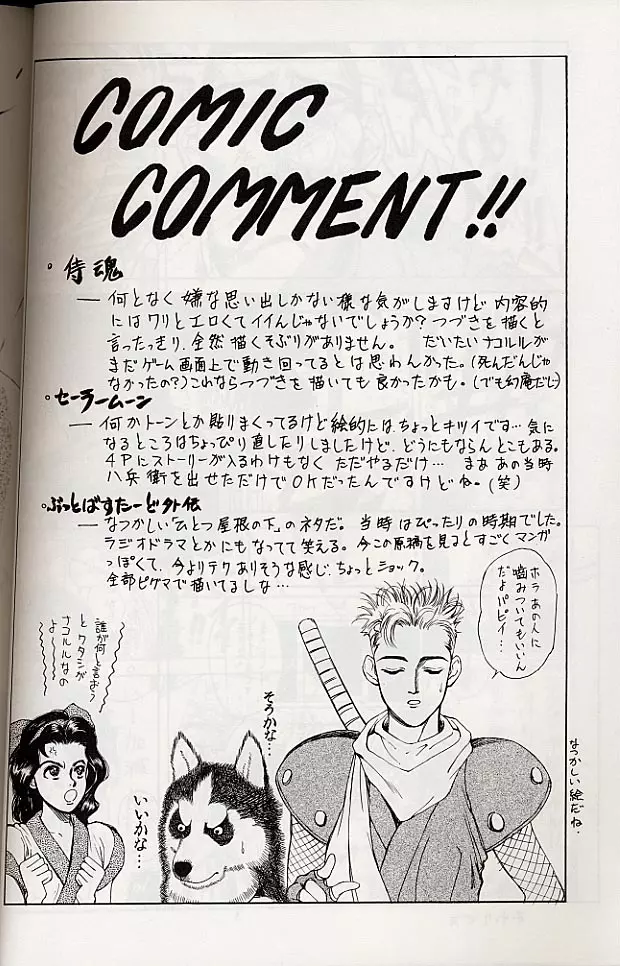 COMIC
COMMENT!!
侍魂
― 何となく嫌な思い出しかない様な気がしますけど 内容的
にはワリとエロくてイイんじゃないでしょうか? つづきを描くと
言ったっきり、全然描くそぶりがありません。 だいたいナコルルが
まだゲーム画面上で動き回ってるとは思わんかった。(死んだんじゃ
なかったの?)これならつづきを描いても良かったかも。(でも幻庵だし)
セーラームーン
― 何かトーンとか貼りまくってるけど絵的にはちょっとキツイです…気に
なるところはちょっぴり直したりしましたけど、どうにもならんとこもある。
4Pにストーリーが入るわけもなく ただやるだけ… まぁあの当時
八兵衛を出せただけでOKだったんですけどね。(笑)
ぶっとばすたーど外伝
― なつかしい「ひとつ屋根の下」のネタだ。当時はぴったりの時期でした。
ラジオドラマとかにもなってて笑える。今この原稿を見るとすごくマンガ
っぽくて、今よりテクありそうな感じ、ちょっとショック。
全部ピグマで描いてるしな…
ホラ あの人に
噛みついてもいいん
だよパピィ…
誰が何と言おう
とワタシが
ナコルルなの
よ〜
そうかな…
いいかな…
なつかしい絵だね.